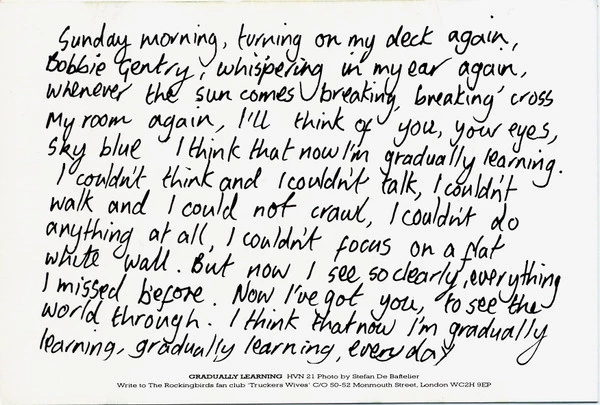 Sunday morning, turning on my deck again,
Bobbie Gentry, whispering in my ear again,
whenever the sun comes breaking, breaking 'cross
my room again, I'll think of you, your eyes,
sky blue I think that now I'm gradually learning.
I couldn't think and I couldn't talk, I couldn't
walk and I could not crawl, I couldn't do
anything at all, I couldn't focus on a flat
white wall. But now I see so clearly, everything
I missed before. Now I've got you, to see the
world through. I think that now I'm gradually
learning, gradually learning, every day
GRADUALLY LEARNING HVN 21 Photo by Stefan De Batselier
Write to The Rockingbirds fan club 'Truckers Wives' C/O 50-52 Monmouth Street, London WC2H 9EP